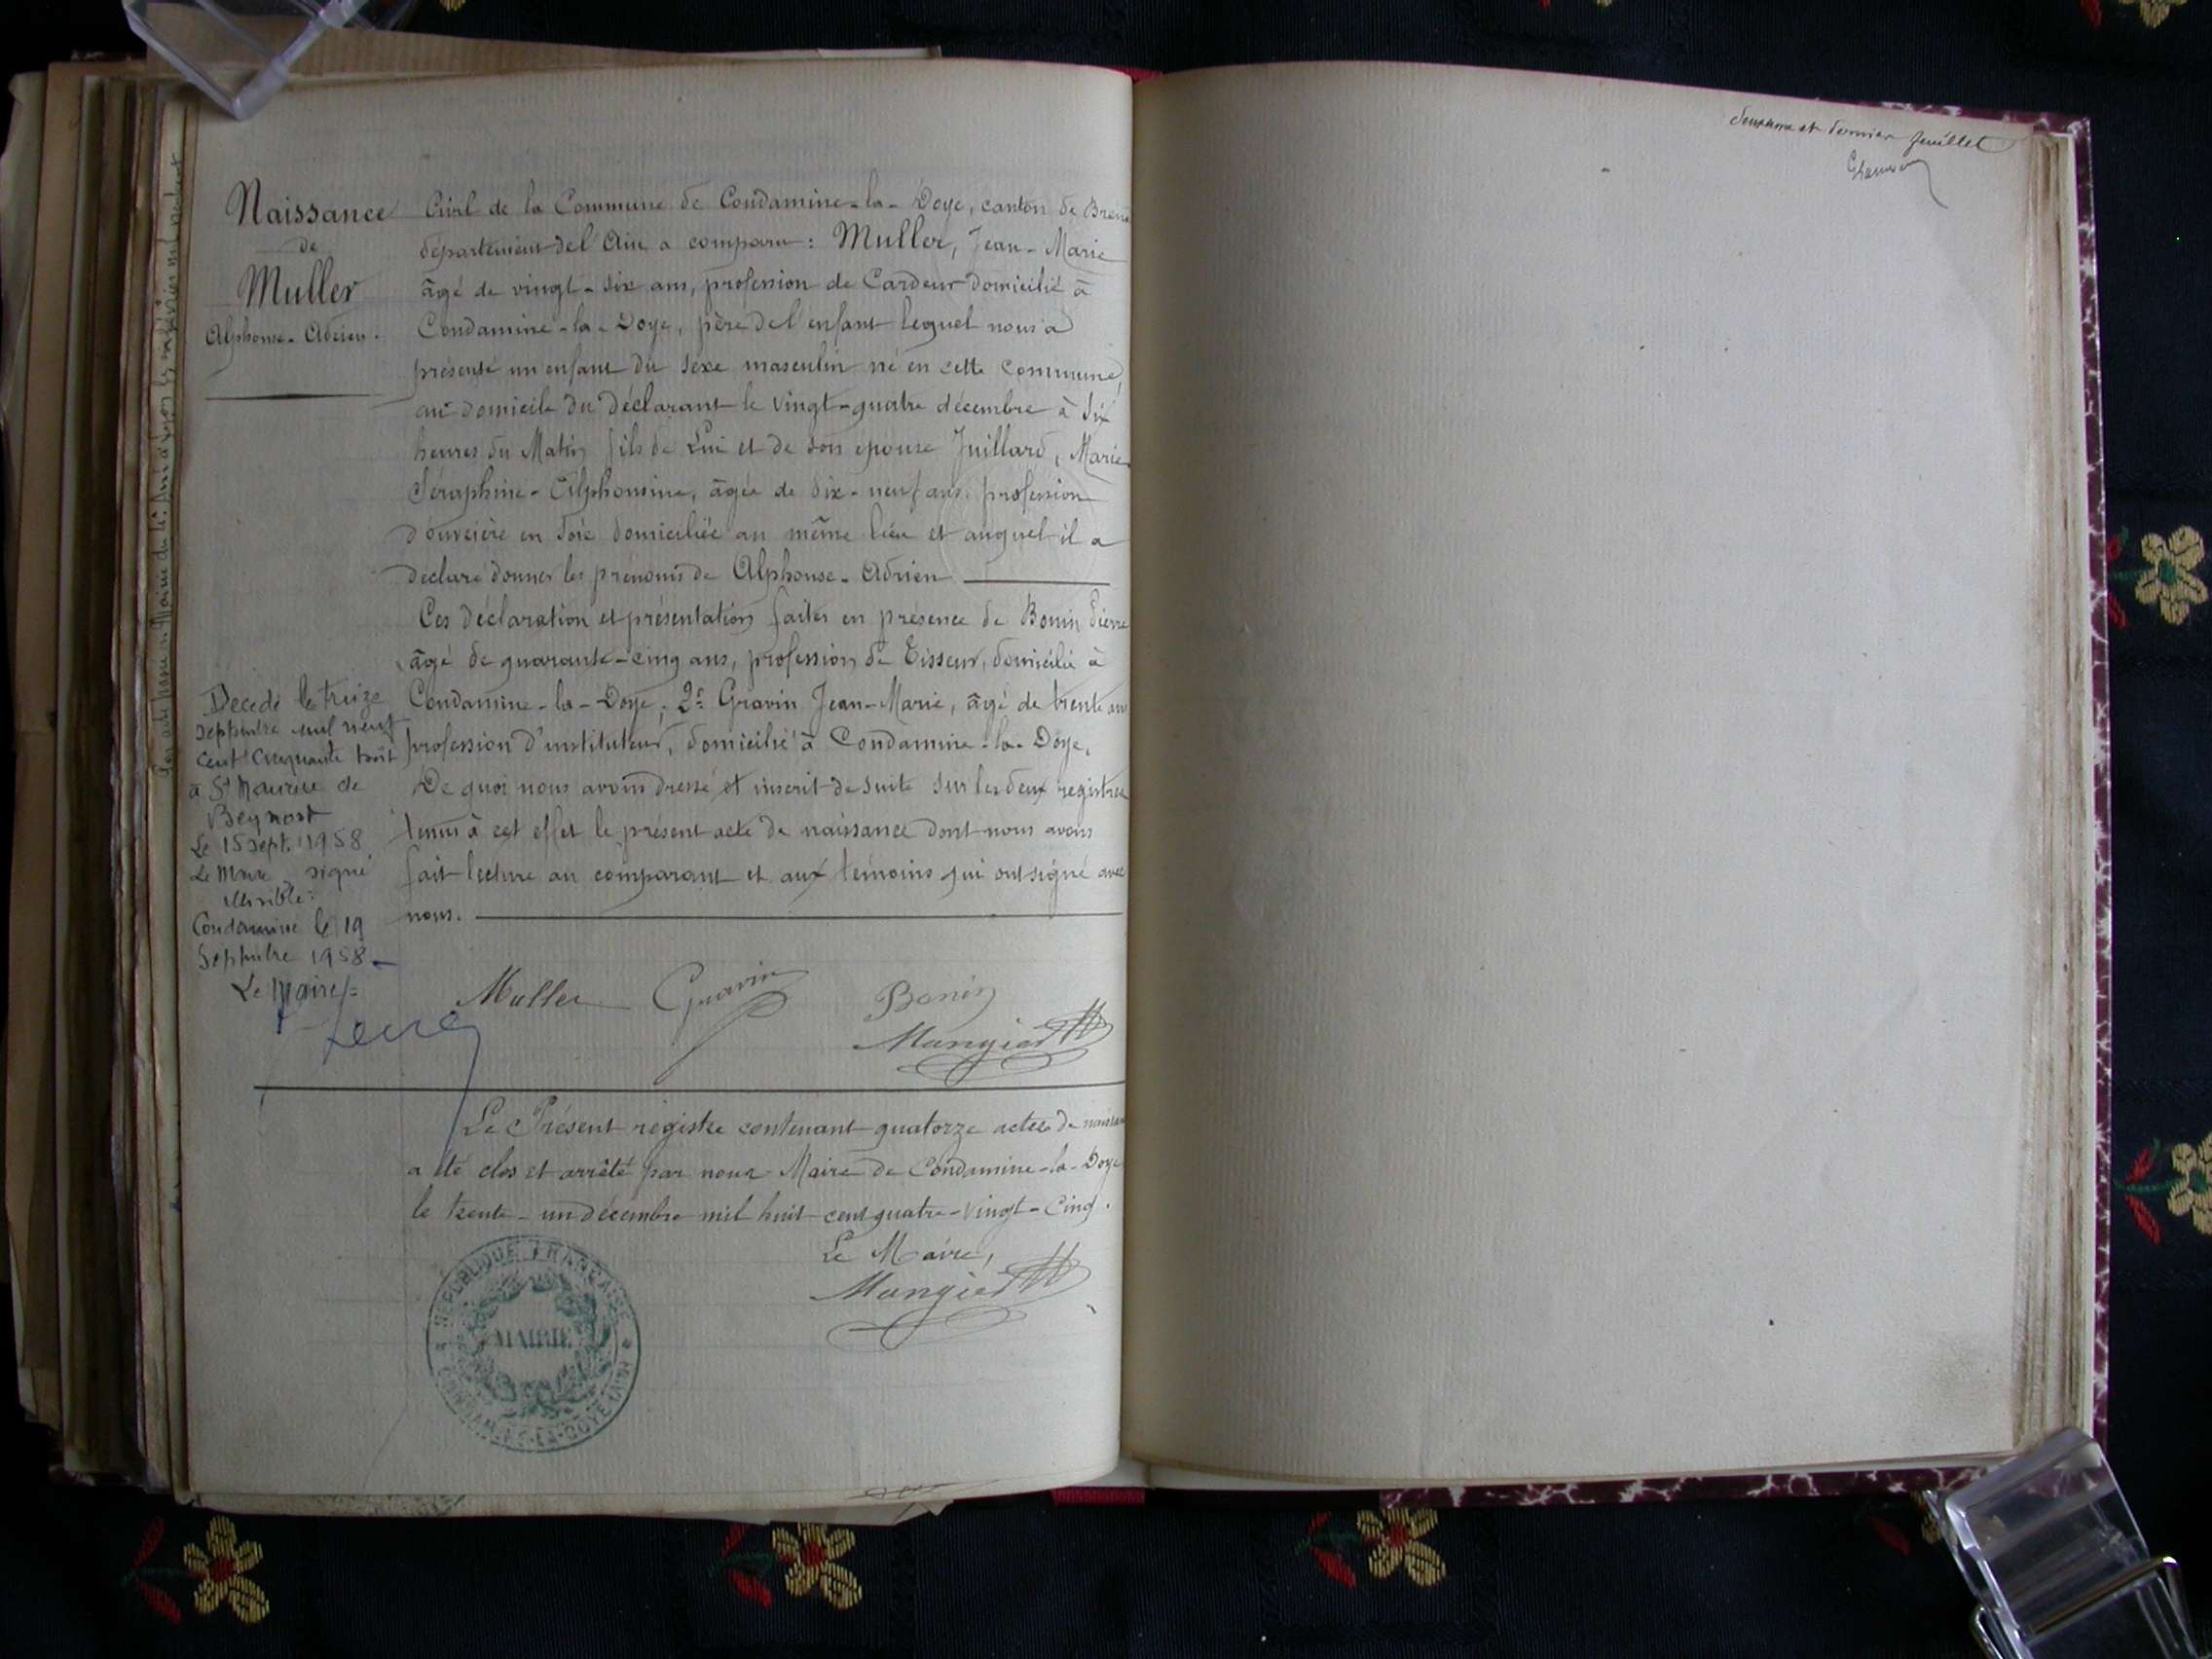 Naissance
de
Muller
Alphonse-Adrien.
Civil de la Commune de Condamine-la-Doye, canton de Breno
département de l'Ain a comparu : Muller, Jean-Marie
âgé de vingt-six ans, profession de Cardeur domicilié à
Condamine-la-Doye, père de l'enfant lequel nous a
présenté un enfant du sexe masculin né en cette commune,
au domicile du déclarant le vingt-quatre décembre à six
heures du Matin fils de Lui et de son épouse Juillard, Marie
Séraphine-Alphonsine, âgée de dix-neuf ans, profession
d'ouvrière en soie domiciliée au même lieu et auquel il a
déclaré donner les prénoms de Alphonse-Adrien
Ces déclaration et présentation faites en présence de Bonin Pierre
âgé de quarante-cinq ans, profession de Tisseur, domicilié à
Condamine-la-Doye, 2° Gravin Jean-Marie, âgé de trente ans
profession d'instituteur, domicilié à Condamine-la-Doye.
De quoi nous avons dressé et inscrit de suite sur les deux registres
tenus à cet effet le présent acte de naissance dont nous avons
fait lecture au comparant et aux témoins qui ont signé avec
nous.
Décédé le treize
septembre mil neuf
cent cinquante huit
à St Maurice de
Beynost
Le 15 sept. 1958
Le Maire signé
illisible :
Condamine le 19
Septembre 1958
Le Maire
Muller Gravin Bonin
Mangier
Le Présent registre contenant quatorze actes de naissan
a été clos et arrêté par nous Maire de Condamine-la-Doye
le trente-un décembre mil huit cent quatre-vingt-cinq.
Le Maire,
Mangier
RÉPUBLIQUE FRANÇAISE
MAIRIE
CONDAMINE-LA-DOYE (AIN)
deuxième et dernier feuillet